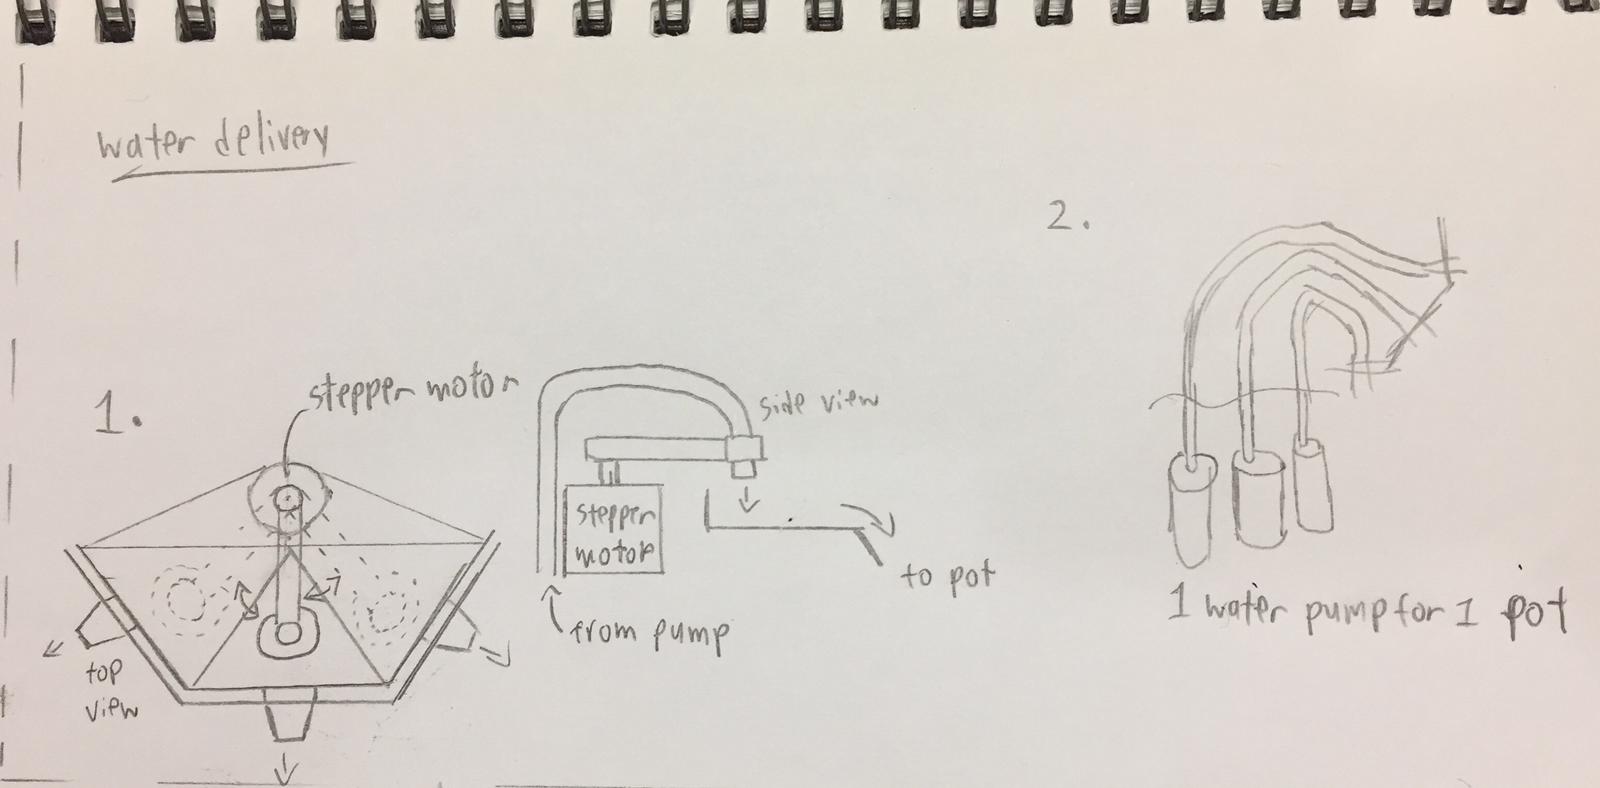 water delivery
1.
stepper motor
top
view
side view
stepper
motor
from pump
to pot
2.
1 water pump for 1 pot